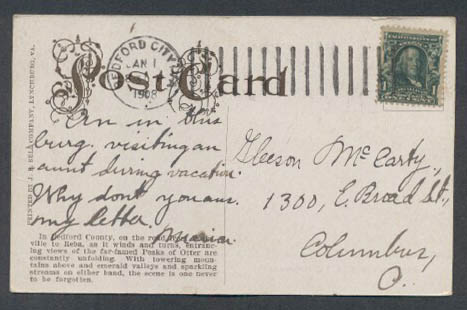 Post Card
BEDFORD CITY, VA.
JAN 1
1908
1
PRINTED BY J. P. BELL COMPANY, LYNCHBURG, VA.
Am in this
burg. visiting an
aunt during vacation.
Why dont you ans.
my letter.
Gleeson McCarty,
1300, E. Broad St.,
Columbus,
O.
In Bedford County, on the road
ville to Reba, as it winds and turns, entranc-
ing views of the far-famed Peaks of Otter are
constantly unfolding. With towering moun-
tains above and emerald valleys and sparkling
streams on either hand, the scene is one never
to be forgotten.